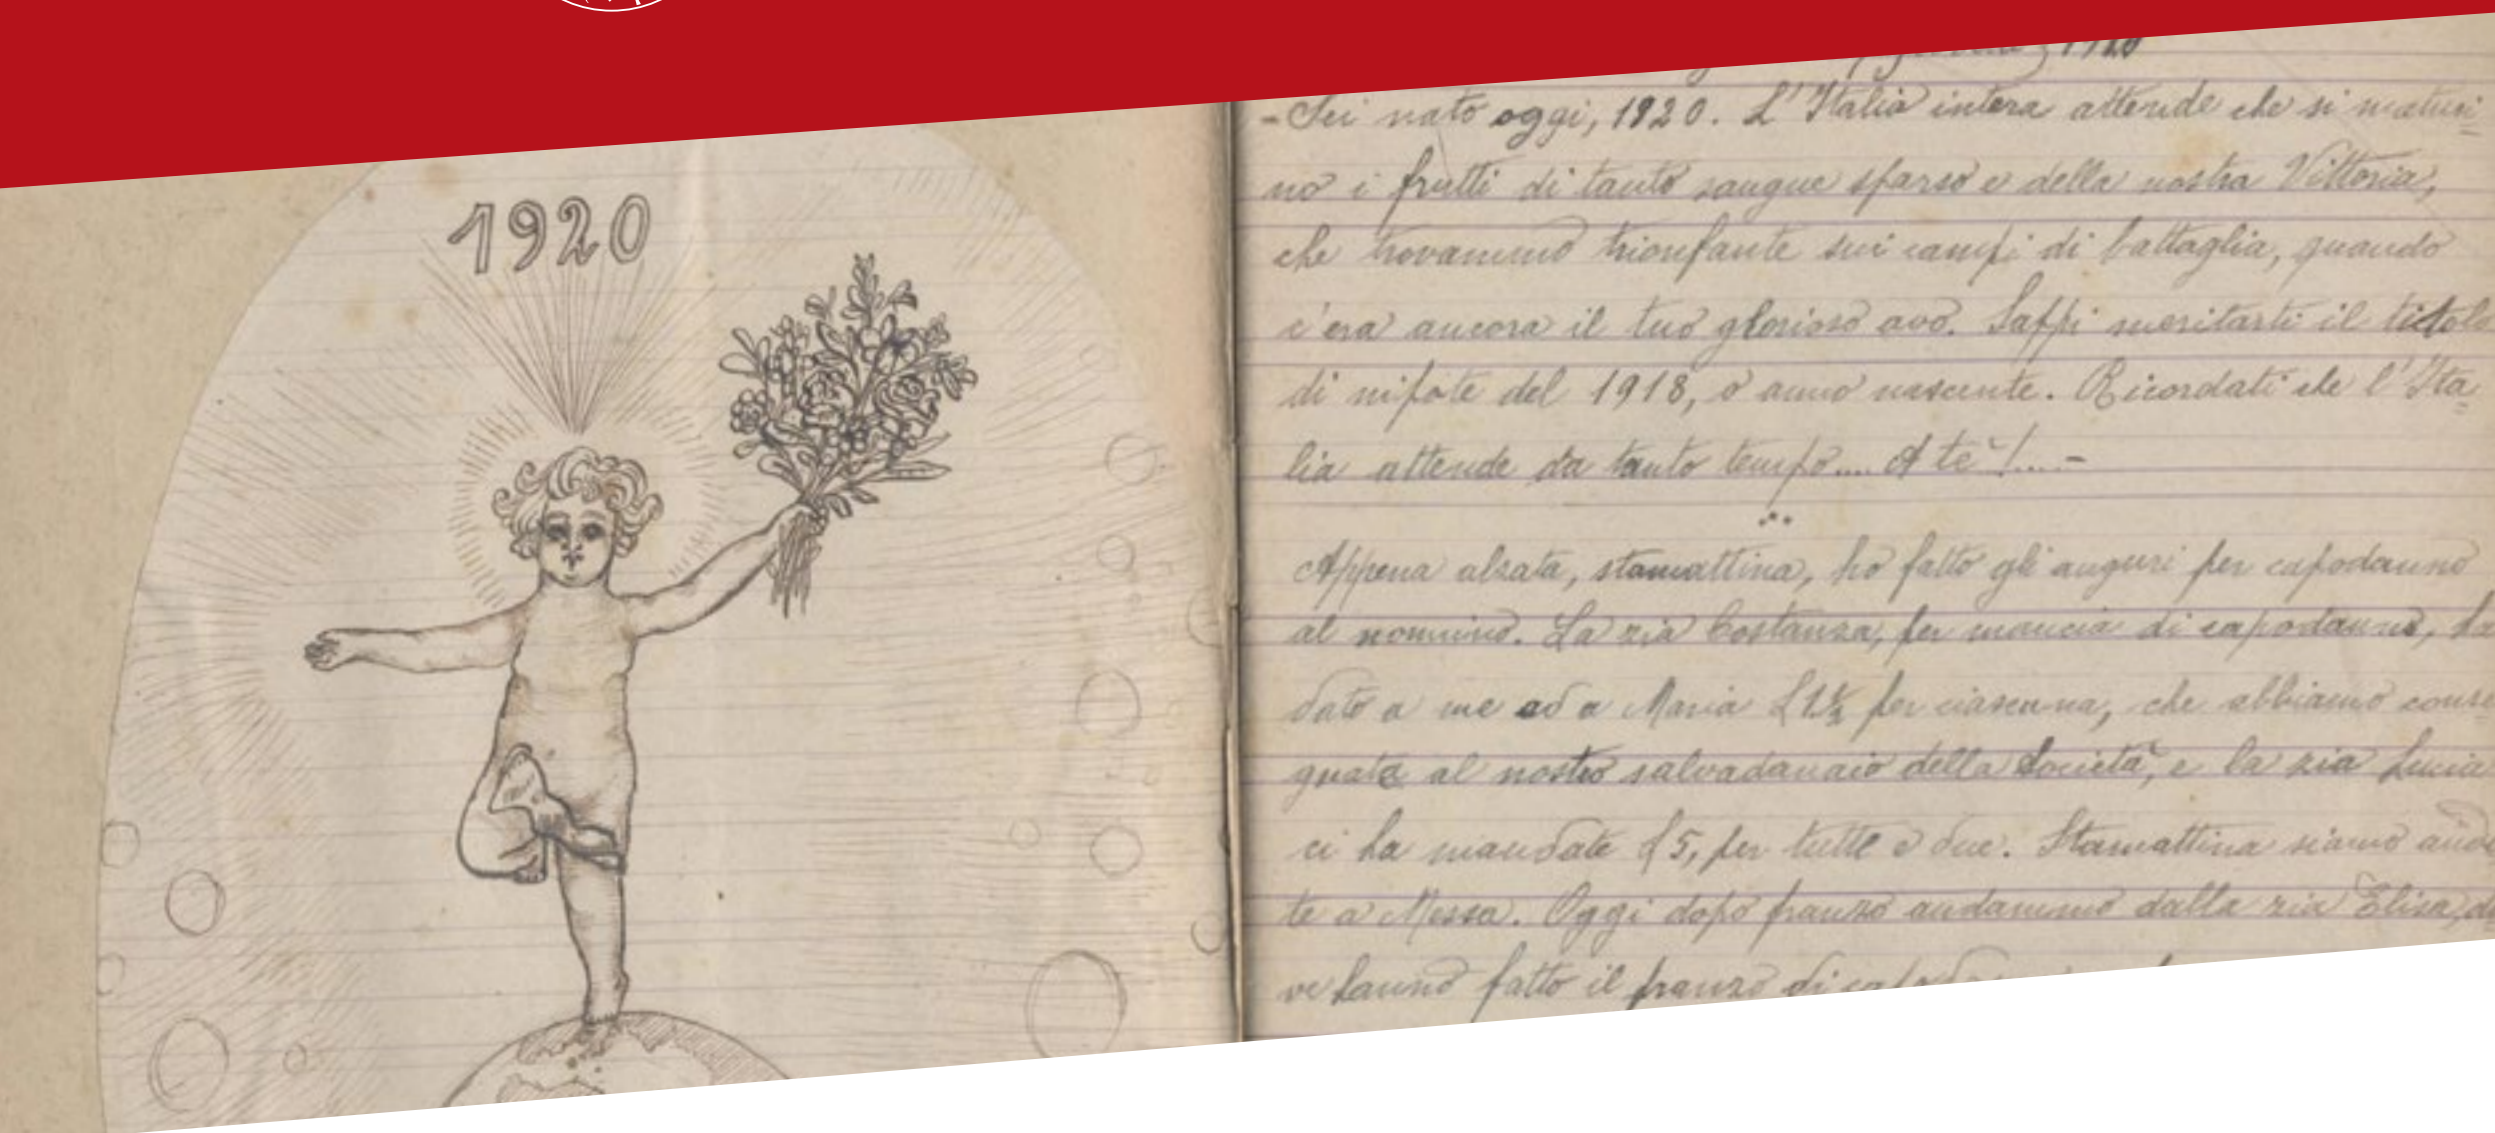 1920
1920
-Sei nato oggi, 1920. L'Italia intera attende che si maturi=
no i frutti di tanto sangue sparso e della nostra Vittoria,
che trovammo trionfante sui campi di battaglia, quando
c'era ancora il tuo glorioso avo. Sappi meritarti il titolo
di nipote del 1918, o anno nascente. Ricordati che l'Ita=
lia attende da tanto tempo.... A te!....-
Appena alzata, stamattina, ho fatto gli auguri per capodanno
al nonnino. La zia Costanza, per mancia di capodanno, ha
dato a me ed a Maria £ 1½ per ciascuna, che abbiamo conse
gnate al nostro salvadanaio della Società, e la zia Lucia
ci ha mandate £ 5, per tutte e due. Stamattina siamo anda
te a Messa. Oggi dopo pranzo andammo dalla zia Elisa, do
ve hanno fatto il pranzo di